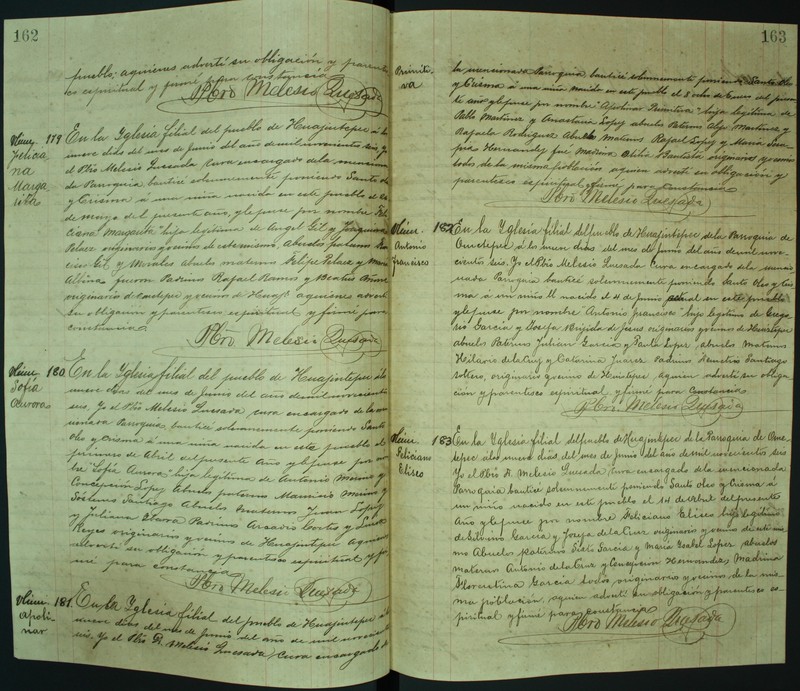 162
pueblo; a quienes advertí su obligación y parentes
co espiritual y firmé para constancia
Pbro Melesio Quesada
Núm. 179
Felicia
na
Marga
rita
En la Yglesia filial del pueblo de Huajintepec á los
nueve dias del mes de Junio del año de mil novecientos seis, Yo
el Pbro Melesio Quesada Cura encargado de la menciona
da Parroquia bautizé solemnemente poniendo Santo oleo
y Crisma á una niña nacida en este pueblo el
de mayo del presente año, y le puse por nombre Feli
ciana Margarita hija legítima de Angel Gil y Joaquina
Pelaez originarios y vecinos de este mismo, Abuelos paternos
Gil, y Morales abuelos maternos Felipe Pelaez y María
Albina fueron Padrinos Rafael Ramos y Beatris
originarios de Ometepec y vecinos de Huajº a quienes advertí
su obligacion y parentesco espiritual y firmé para
constancia
Pbro Melesio Quesada
Núm. 180
Sofía
Aurora
En la Yglesia filial del pueblo de Huajintepec á los
nueve dias del mes de Junio del año de mil novecientos
seis, Yo el Pbro Melesio Quesada, cura encargado de la men
cionada Parroquia, bautizé solemnemente poniendo Santo
Oleo y Crisma á una niña nacida en este pueblo el
primero de Abril del presente Año y le puse por nom
bre Sofía Aurora hija legítima de Antonio Merino y
Concepción Lopez Abuelos paternos Mauricio Merino y
Santiago Abuelos maternos Juan Lopez
y Juliana Ybarra Padrinos Arcadio Cortes y
Reyes originarios y vecinos de Huajintepec a quienes
advertí su obligación y parentesco espiritual y fir
mé para constancia
Pbro Melesio Quesada
Núm. 181
Apoli
nar
En la Yglesia filial del pueblo de Huajintepec á los
nueve dias del mes de Junio del año de mil novecientos
seis, Yo el Pbro R. Melesio Quesada, Cura encargado de
163
Primiti
va
la mencionada Parroquia bautizé solemnemente poniendo Santo Oleo
y Crisma á una niña nacida en este pueblo el 8 ocho de Enero del presen
te año y le puse por nombre "Apolinar Primitiva" hija legítima de
Pablo Martinez y Anastacia Lopez abuelos Paternos Martinez y
Rafaela Rodriguez Abuelos Maternos Rafael Lopez y María Jose
pha Hernandez fué Madrina Otilia Bautista originarios y veci
nos de la misma poblacion a quien advertí su obligación y
parentesco espiritual y firmé para Constancia
Pbro Melesio Quesada
Núm. 182
Antonio
Francisco
En la Yglesia filial del pueblo de Huajintepec de la Parroquia de
Ometepec á los nueve dias del mes de Junio del año de mil nove
cientos seis. Yo el Pbro Melesio Quesada Cura encargado de la mencio
nada Parroquia bautizé solemnemente poniendo Santo Oleo y Cris
ma á un niño nacido el 4 de Junio actual en este pueblo
y le puse por nombre Antonio Francisco hijo legítimo de Grego
rio Garcia y Josefa Brigida de Jesus originarios y vecinos de Huajintepec
abuelos Paternos Julian Garcia y Paula Lopez, abuelos Maternos
Hilario de la Cruz y Catarina Juarez Padrino Demetrio Santiago
soltero, originario y vecino de Huajintepec, a quien advertí su obliga
cion y parentesco espiritual y firmé para Constancia
Pbro. Melesio Quesada
Núm. 183
Feliciano
Eliseo
En la Yglesia filial del pueblo de Huajintepec de la Parroquia de Ome
tepec á los nueve dias del mes de Junio del año de mil novecientos seis
Yo el Pbro R. Melesio Quesada, Cura encargado de la mencionada
Parroquia bautizé solemnemente poniendo Santo oleo y Crisma á
un niño nacido en este pueblo el 14 de Abril del presente
Año y le puse por nombre Feliciano Eliseo hijo legítimo
de Garcia y Josefa de la Cruz originarios y vecinos de este mis
mo Abuelos paternos Garcia y María Isabel Lopez abuelos
maternos Antonio de la Cruz y Concepcion Hernandez Madrina
Florentina Garcia todos originarios y vecinos de la mis
ma poblacion, a quien advertí su obligacion y parentesco es
piritual y firmé para constancia
Pbro Melesio Quesada